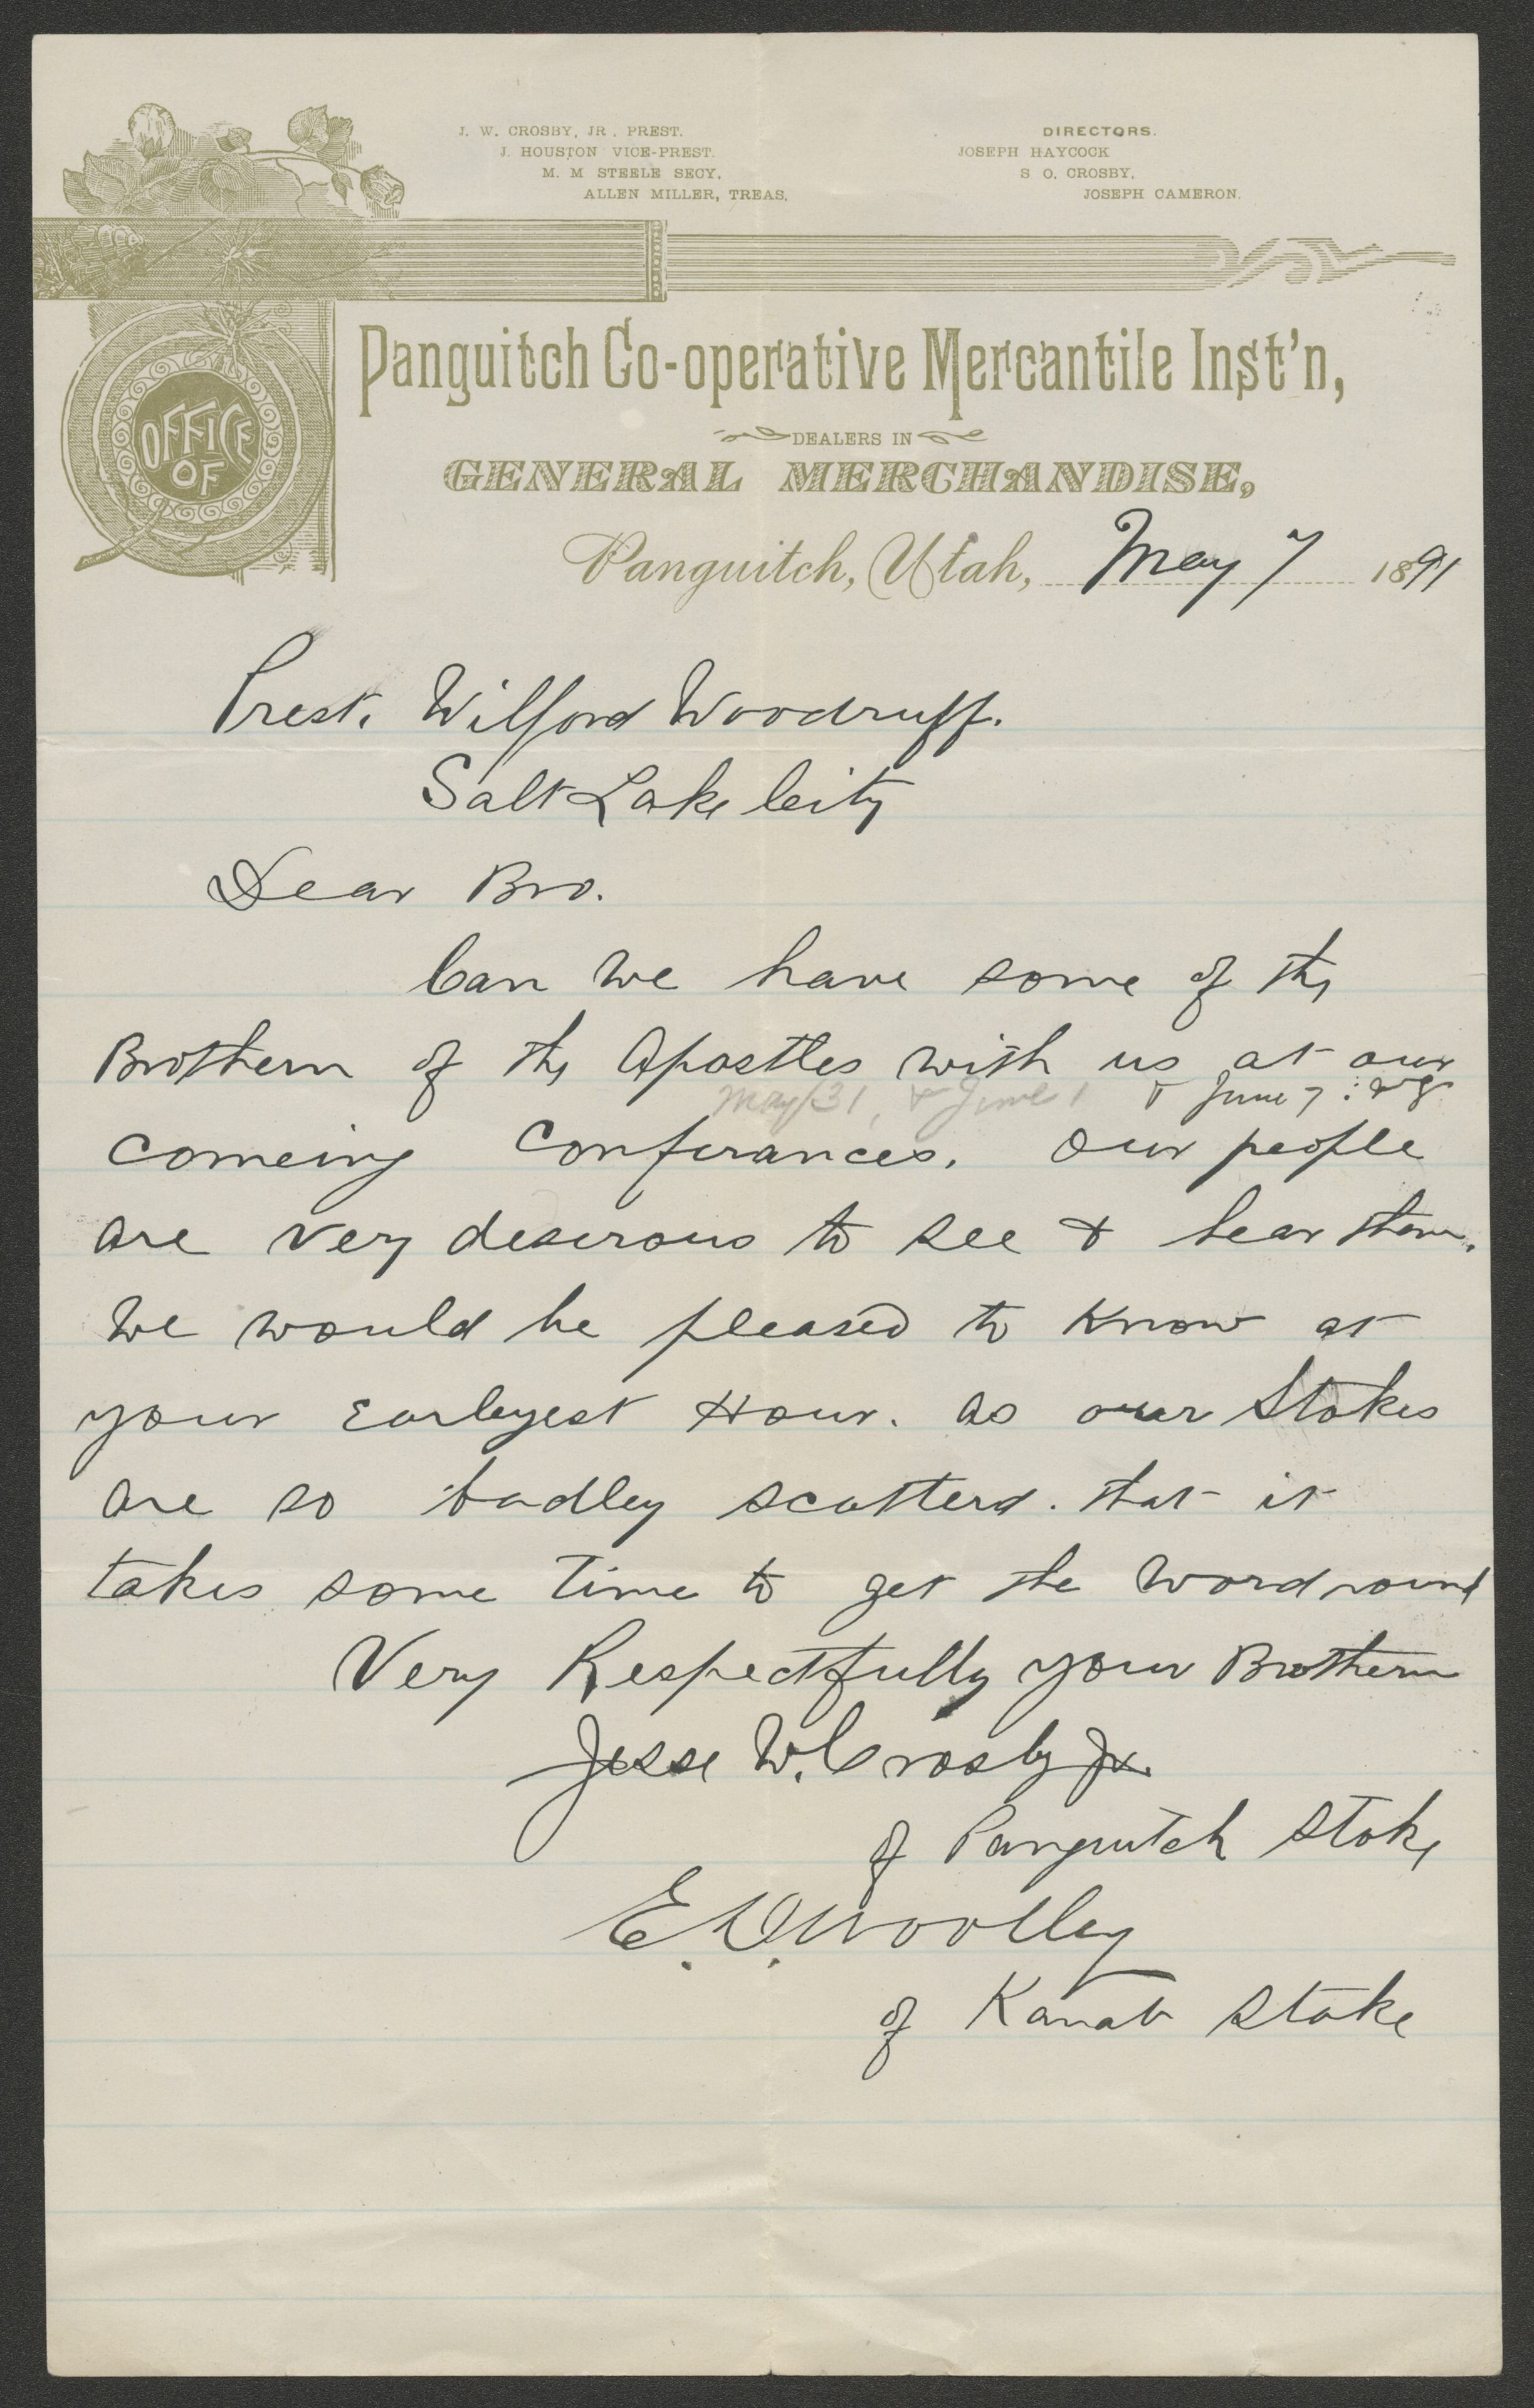 J. W. CROSBY, JR., PREST.
J. HOUSTON VICE-PREST.
M. M STEELE SECY,
ALLEN MILLER, TREAS.
DIRECTORS.
JOSEPH HAYCOCK
S O. CROSBY,
JOSEPH CAMERON.
OFFICE
OF
Panguitch Co-operative Mercantile Inst'n,
DEALERS IN
GENERAL MERCHANDISE,
Panguitch, Utah, May 7 1891
Prest. Wilford Woodruff.
Salt Lake City
Dear Bro.
Can we have some of the
Brothern of the Apostles with us at our
May 31, & June 1 & June 7 : & 8
comeing Conferances. Our people
are very deserous to see & hear them.
We would be pleased to know at
your Earleyest Hour. as our Stakes
are so badley scatterd. that it
takes some time to get the word round
Very Respectfully your Brothern
Jesse W. Crosby Jr.
of Panguitch Stake
E. D. Woolley
of Kanab Stake